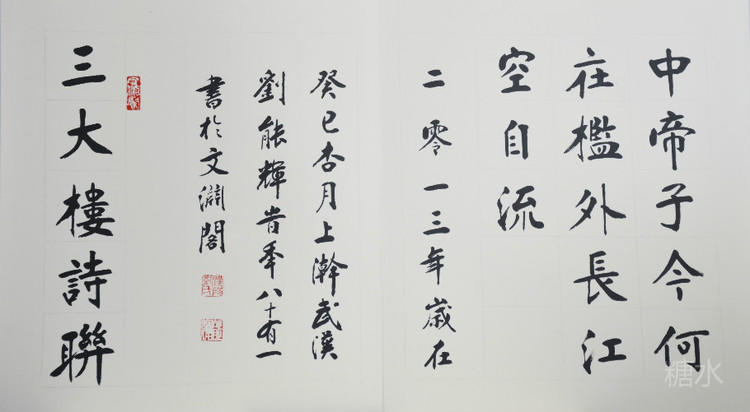 中帝子今何
在檻外長江
空自流
二零一三年歲在
癸巳杏月上澣武漢
劉能輝皆年八十有一
書於文淵閣
三大樓詩聯
糖水